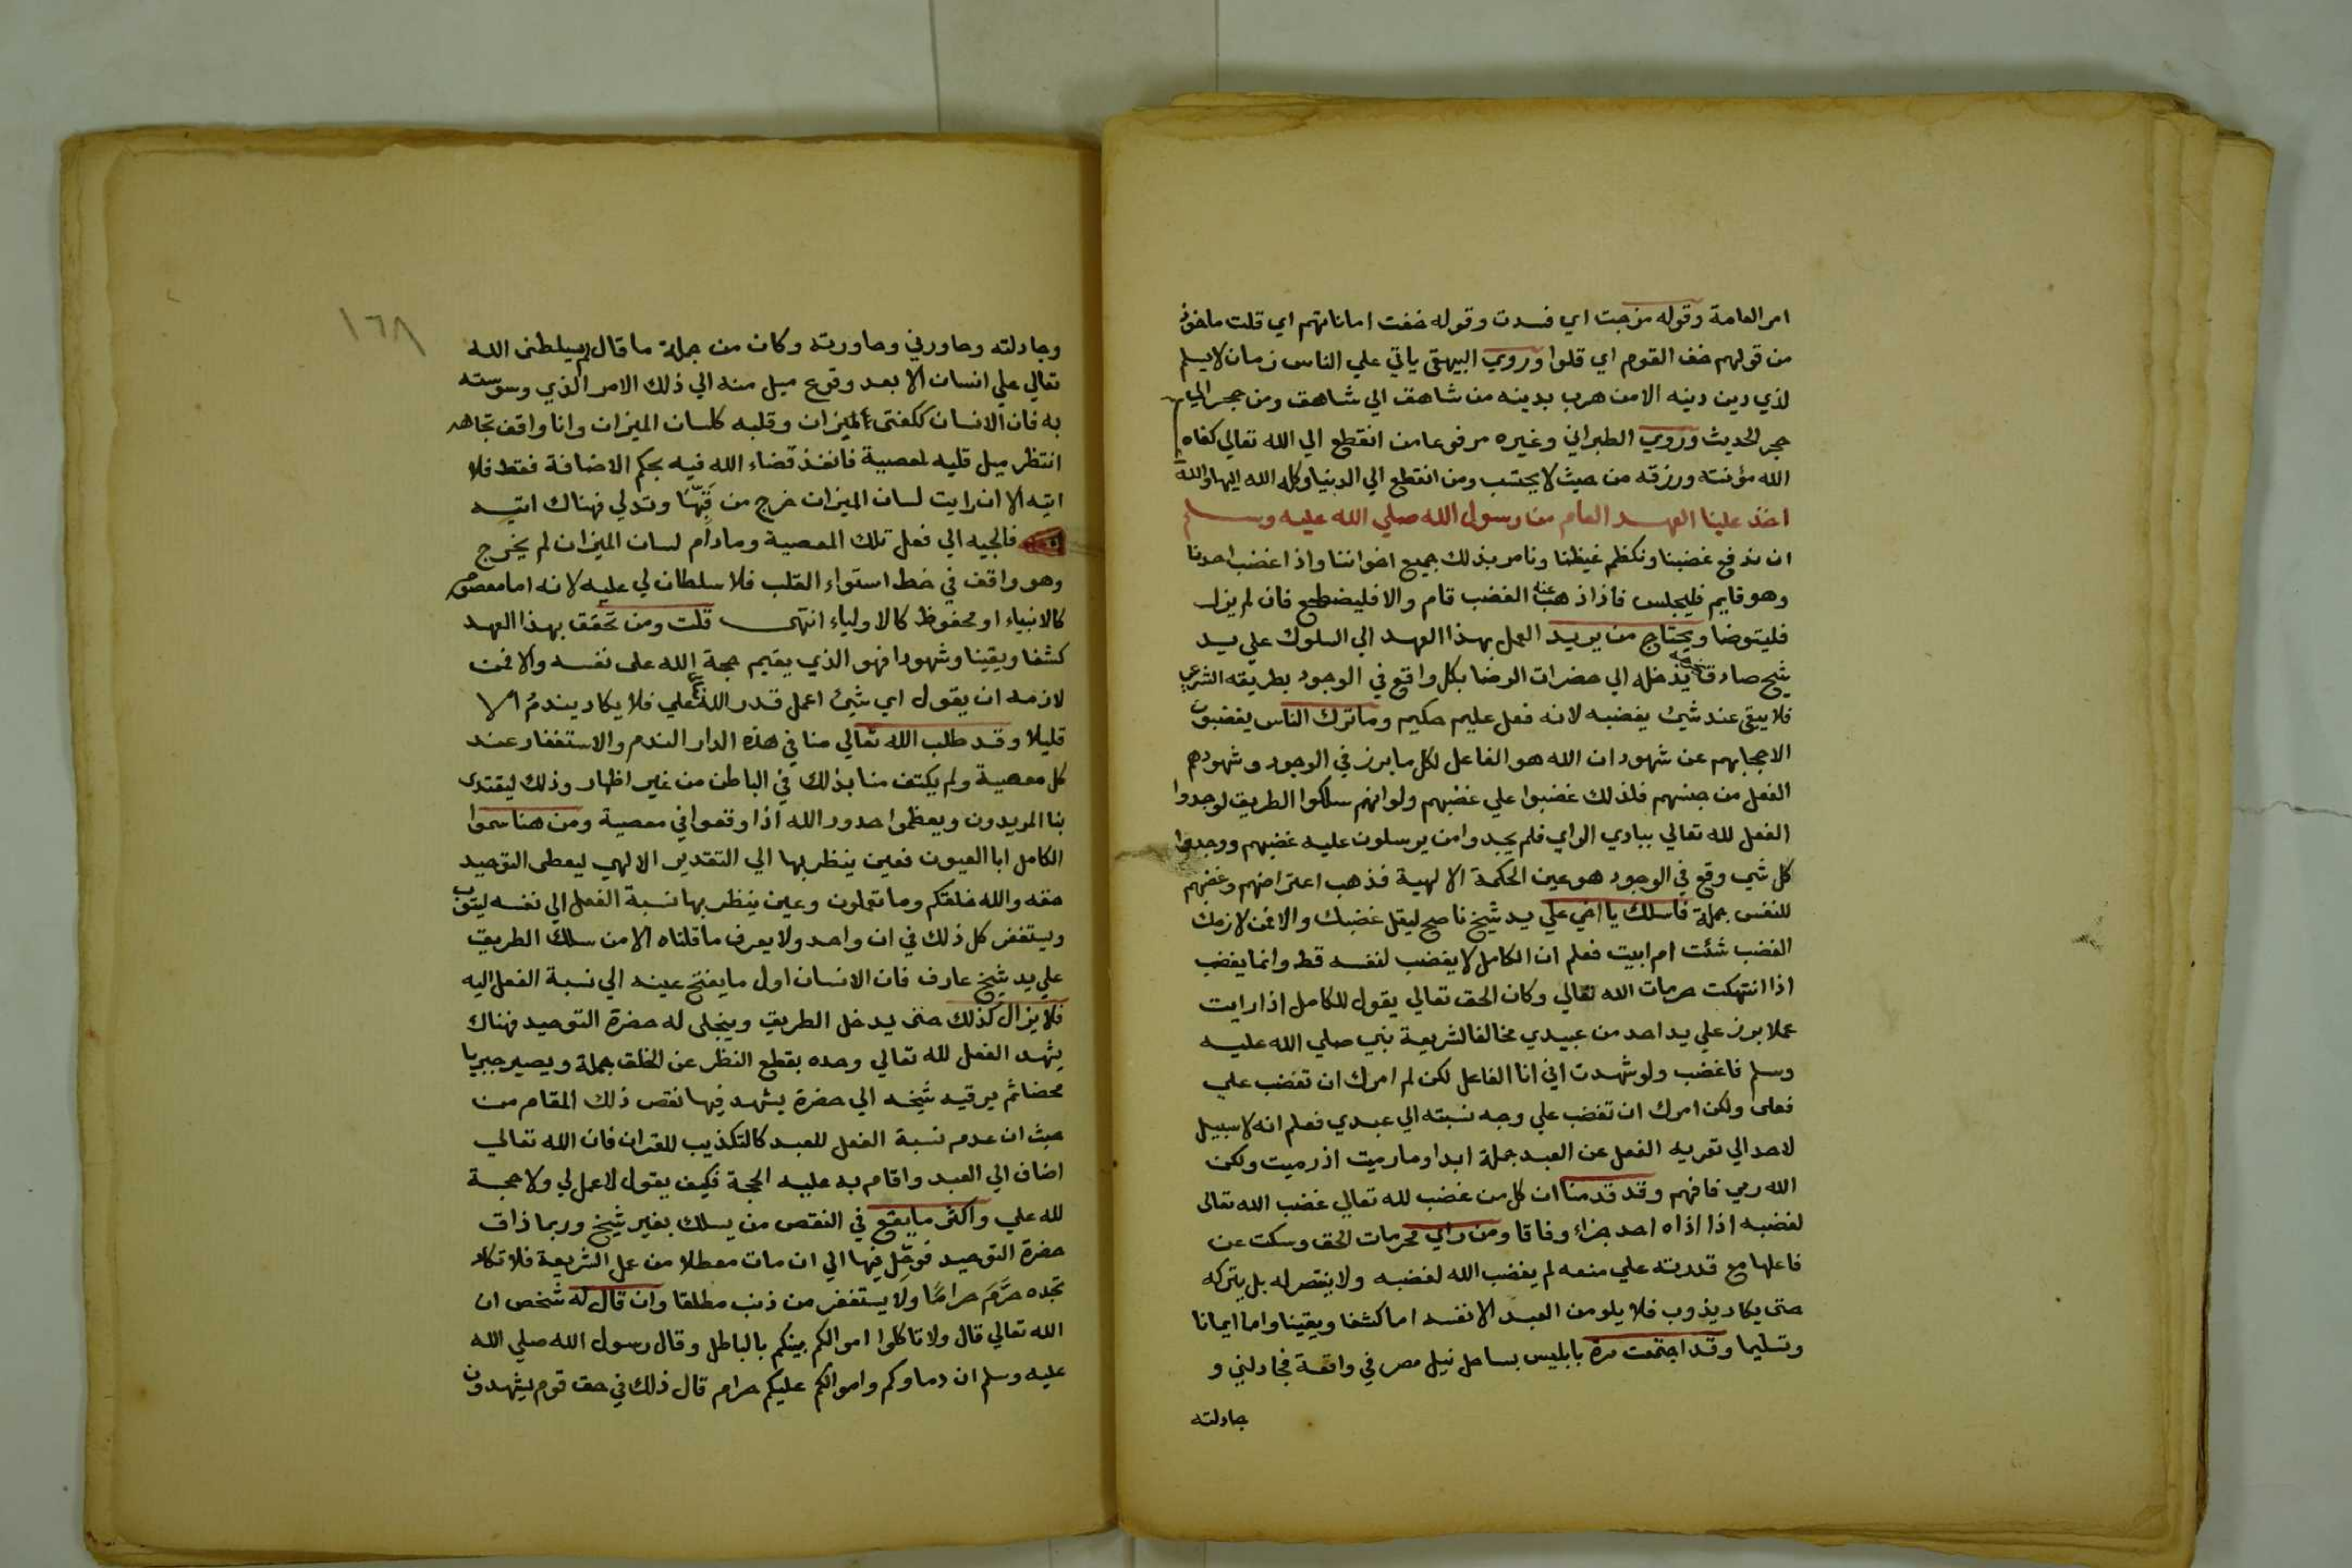 امر العامة وقوله مزجت اي فسدت وقوله خفت اماناتهم اي قلت ماخوذ
من قولهم خف القوم اي قلوا وروي البيهقي ياتي علي الناس زمان لا يسلم
لذي دين دينه الا من هرب بدينه من شاهق الي شاهق ومن حجر الي
حجر الحديث وروي الطبراني وغيره مرفوعا من انقطع الي الله تعالي كفاه
الله مؤنته ورزقه من حيث لا يحتسب ومن انقطع الي الدنيا وكله الله اليها والله
اخذ علينا العهد العام من رسول الله صلي الله عليه وسلم
ان ندفع غضبنا ونكظم غيظنا ونامر بذلك جميع اخواننا واذا غضب احدنا
وهو قايم فليجلس فاذا ذهب عنه الغضب قام والا فليضطجع فان لم يزل
فليتوضا ويحتاج من يريد العمل بهذا العهد الي السلوك علي يد
شيخ صادق يدخله الي حضرات الرضا بكل واقع في الوجود بطريقه الشرعي
فلا يبقي عند شيئ يغضبه لانه فعل عليم حكيم وما ترك الناس يغضبون
الا حجابهم عن شهود ان الله هو الفاعل لكل ما برز في الوجود وشهودهم
الفعل من جنسهم فلذلك غضبوا علي غضبهم ولو انهم سلكوا الطريق لوجدوا
الفعل لله تعالي ببادي الراي فلم يجدوا من يرسلون عليه غضبهم ووجدوا
كل شي وقع في الوجود هو عين الحكمة الالهية فذهب اعتراضهم وغضبهم
للنفس جملة فاسلك يا اخي علي يد شيخ ناصح ليقل غضبك والا فمن لازمك
الغضب شئت ام ابيت فعلم ان الكامل لا يغضب لنفسه قط وانما يغضب
اذا انتهكت حرمات الله تعالي وكان الحق تعالي يقول للكامل اذا رايت
عملا برز علي يد احد من عبيدي مخالفا لشريعة نبي صلي الله عليه
وسلم فاغضب ولو شهدت اني انا الفاعل لكن لم امرك ان تغضب علي
فعلي ولكن امرك ان تغضب علي وجه نسبته الي عبدي فعلم انه لا سبيل
لاحد الي تعريه الفعل عن العبد جملة ابدا وما رميت اذ رميت ولكن
الله رمي فافهم وقد قدمنا ان كل من غضب لله تعالي غضب الله تعالي
لغضبه اذا اذاه احد جزاء وفاقا ومن راي محرمات الحق وسكت عن
فاعلها مع قدرته علي منعه لم يغضب الله لغضبه ولا ينتصر له بل يتركه
حتي يكاد يذوب فلا يلومن العبد الا نفسه اما كشفا ويقينا واما ايمانا
وتسليما وقد اجتمعت مرة بابليس بساحل نيل مصر في واقعة فجادلني و
جادلته
١٦٨
وجادلته وحاورني وحاورته وكان من جملة ما قال لم يسلطني الله
تعالي علي انسان الا بعد وقوع ميل منه الي ذلك الامر الذي وسوسته
به فان الانسان ككفتي الميزان وقلبه كلسان الميزان وانا واقف تجاهه
انتظر ميل قلبه لمعصية فانفذ قضاء الله فيه بحكم الاضافة فقط فلا
اتيه الا ان رايت لسان الميزان خرج من قبها وتدلي فهناك اتيه
فالجيه الي فعل تلك المعصية وما دام لسان الميزان لم يخرج
وهو واقف في خط استواء القلب فلا سلطان لي عليه لانه اما معصوم
كالانبياء او محفوظ كالاولياء انتهي قلت ومن تحقق بهذا العهد
كشفا ويقينا وشهودا فهو الذي يقيم حجة الله علي نفسه والا فمن
لازمه ان يقول اي شيئ اعمل قدر الله علي فلا يكاد يندم الا
قليلا وقد طلب الله تعالي منا في هذه الدار الندم والاستغفار عند
كل معصية ولم يكتف منا بذلك في الباطن من غير اظهار وذلك ليقتدي
بنا المريدون ويعظموا حدود الله اذا وقعوا في معصية ومن هنا سموا
الكامل ابا العيون فعين ينظر بها الي التقدير الالهي ليعطي التوحيد
حقه والله خلقكم وما تعملون وعين ينظر بها نسبة الفعل الي نفسه ليتوب
ويستغفر كل ذلك في ان واحد ولا يعرف ما قلناه الا من سلك الطريق
علي يد شيخ عارف فان الانسان اول ما يفتح عينه الي نسبة الفعل اليه
فلا يزال كذلك حتي يدخل الطريق وينجلي له حضرة التوحيد فهناك
يشهد الفعل لله تعالي وحده بقطع النظر عن الخلق جملة ويصير جبريا
محضا ثم يرقيه شيخه الي حضرة يشهد فيها نقص ذلك المقام من
حيث ان عدم نسبة الفعل للعبد كالتكذيب للقران فان الله تعالي
اضاف الي العبد واقام به عليه الحجة فكيف يقول لا عمل لي ولا حجة
لله علي واكثر ما يقع في النقص من يسلك بغير شيخ وربما ذاق
حضرة التوحيد فوحل فيها الي ان مات معطلا من عمل الشريعة فلا تكاد
تجده حرم حراما ولا يستغفر من ذنب مطلقا وان قال له شخص ان
الله تعالي قال ولا تاكلوا اموالكم بينكم بالباطل وقال رسول الله صلي الله
عليه وسلم ان دماوكم واموالكم عليكم حرام قال ذلك في حق قوم يشهدون